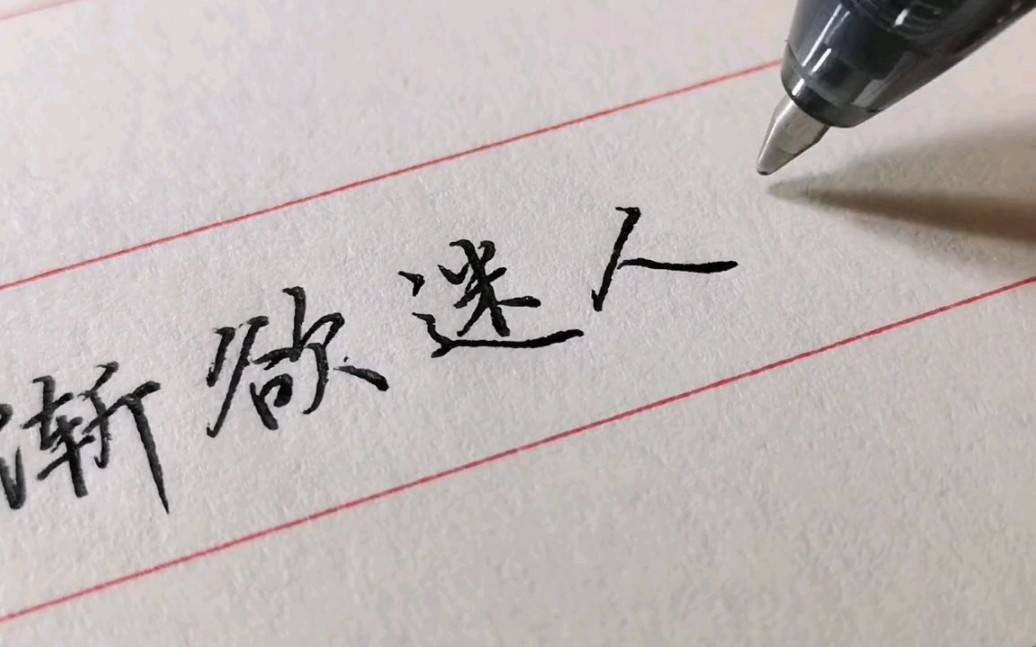 渐欲迷人